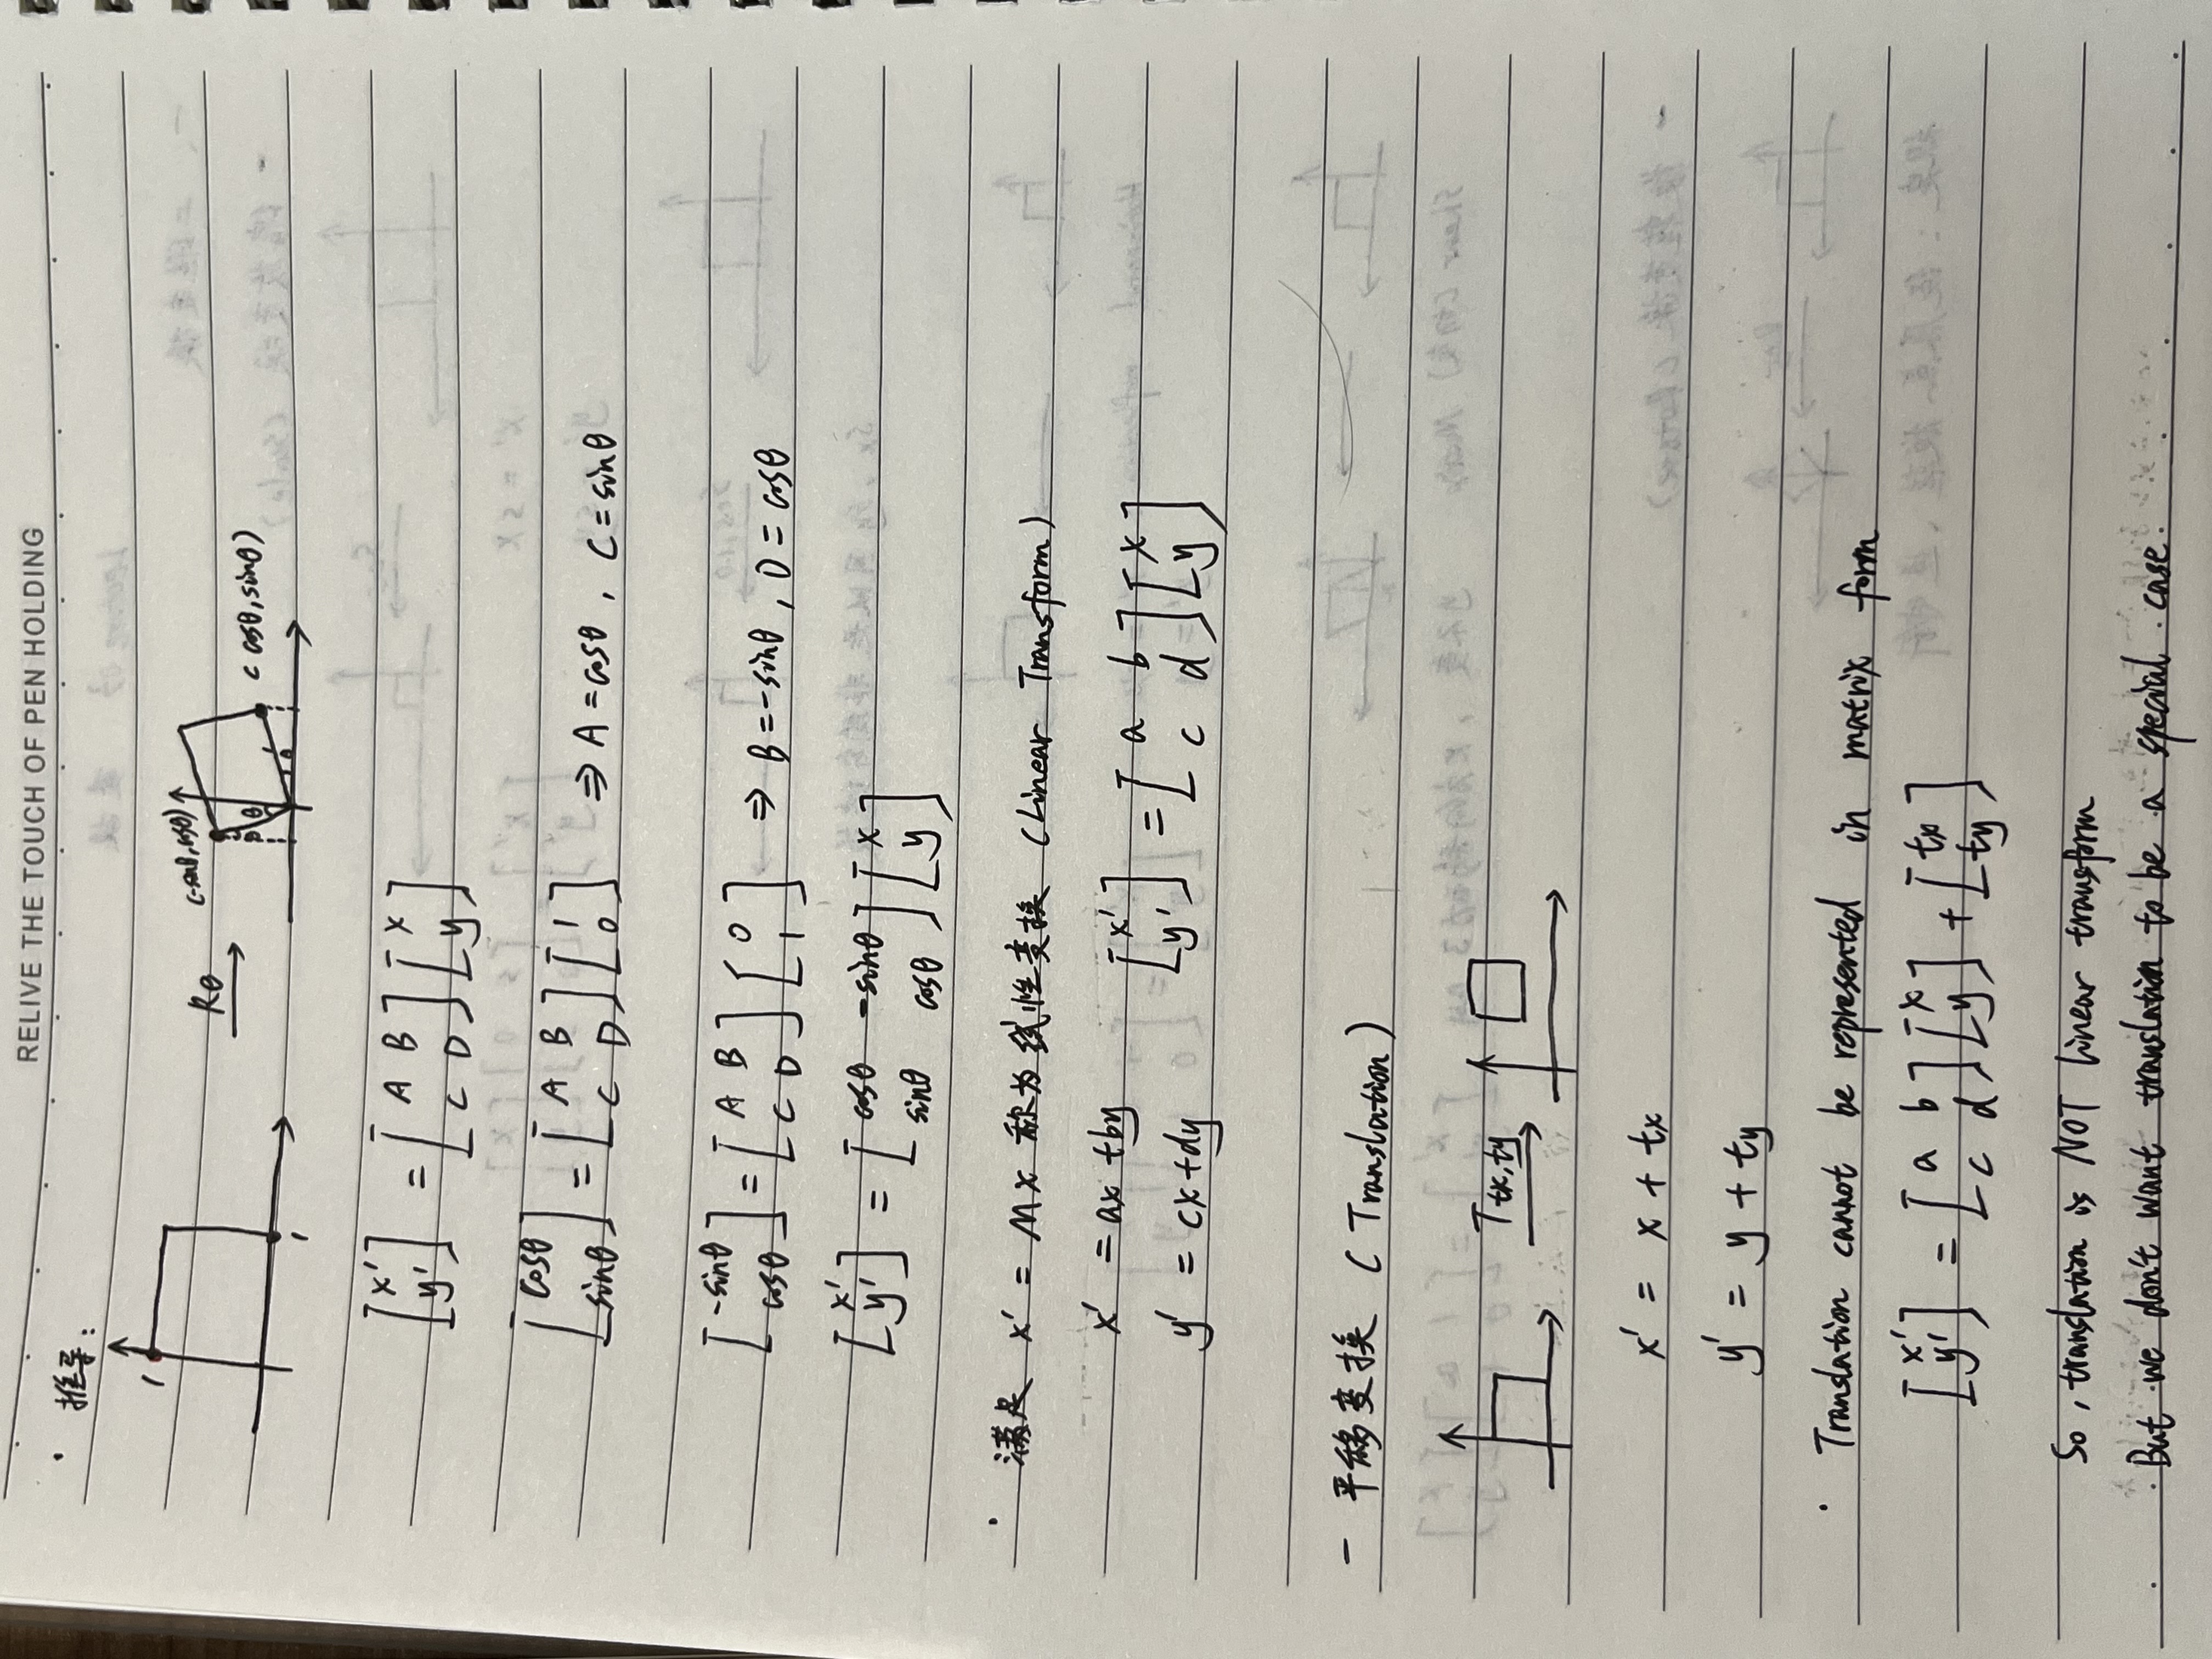 RELIVE THE TOUCH OF PEN HOLDING
· 推导:
1
1
Rθ
(-sinθ, cosθ)
(cosθ, sinθ)
θ
θ
[x' y'] = [A B C D][x y]
[cosθ sinθ] = [A B C D][1 0] ⇒ A = cosθ, C = sinθ
[-sinθ cosθ] = [A B C D][0 1] ⇒ B = -sinθ, D = cosθ
[x' y'] = [cosθ -sinθ sinθ cosθ][x y]
· 满足 x' = Mx 称为线性变换 (Linear Transform)
x' = ax + by
y' = cx + dy
[x' y'] = [a b c d][x y]
- 平移变换 (Translation)
Ttx,ty
x' = x + tx
y' = y + ty
· Translation cannot be represented in matrix form
[x' y'] = [a b c d][x y] + [tx ty]
So, translation is NOT linear transform
But we don't want translation to be a special case.